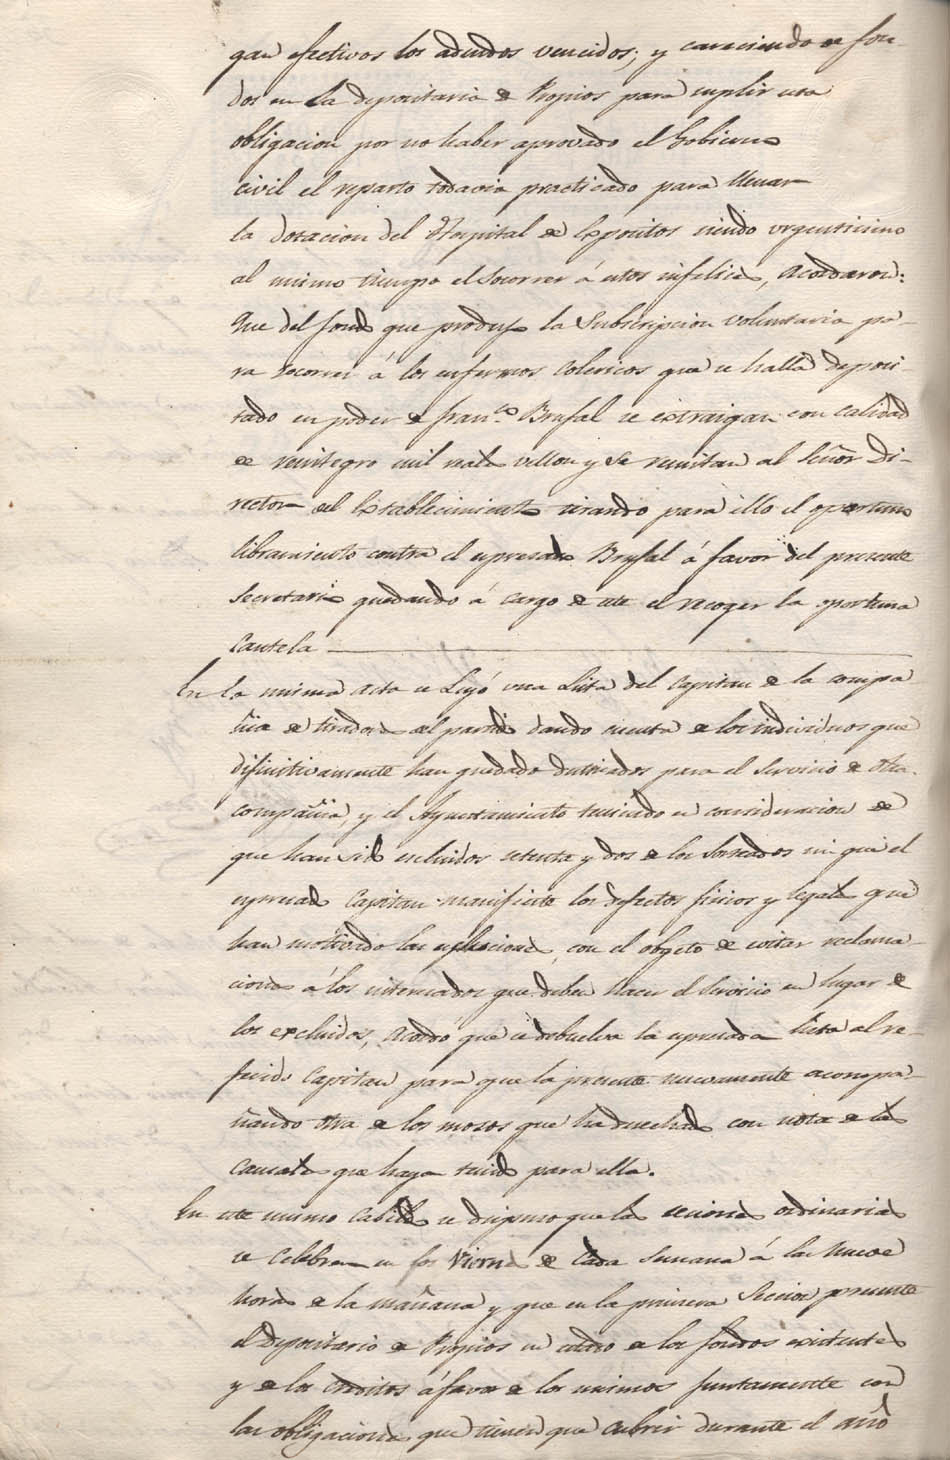 gan efectivos los adeudos vencidos; y careciendo de fon-
dos en la depositaria de Propios para cuplir esta
obligacion por no haber aprovado el Gobierno
civil el reparto todavia practicado para llenar
la dotacion del Hospital de Expositos siendo urgentisimo
al mismo tiempo el Socorrer á estos infelices, acordaron:
Que del fondo que produjo la Subscripcion voluntaria pa-
ra socorrer á los enfermos Colericos que se halla deposi-
tado en poder de Fran.co Brufal se extraigan con calidad
de reintegro mil reales vellon y se remitan al Señor Di-
rector del Establecimiento tirando para ello el oportuno
libramiento contra el espresado Brufal á favor del presente
Secretario quedando á cargo de este el recoger la oportuna
Cautela
En la misma acta se Leyó una Lista del Capitan de la compa
ñia de tiradores del partido dando cuenta de los individuos que
difinitivamente han quedado destinados para el Servicio de otra
compañia, y el Ayuntamiento teniendo en consideracion de
que han sido escluidos setenta y dos de los Sorteados sin que el
espresado Capitan manifieste los defectos fisicos y legales que
han motivado las esclusiones, con el obgeto de evitar reclama-
ciones á los interesados que deben hacer el Servicio en lugar de
los excluidos, acordó que se debuelva la espresada lista al re-
ferido Capitan para que la presente nuevamente acompa-
ñando otra de los mosos que ha desechado con nota de las
causales que haya tenido para ello.
En este mismo Cabildo se dispuso que las seciones ordinarias
se Celebren en los Viernes de Cada Semana á las Nueve
horas de la mañana y que en la primera Seccion presente
el Depositario de Propios un estado de los fondos existentes
y de los creditos á favor de los mismos juntamente con
las obligaciones que tienen que cubrir durante el año